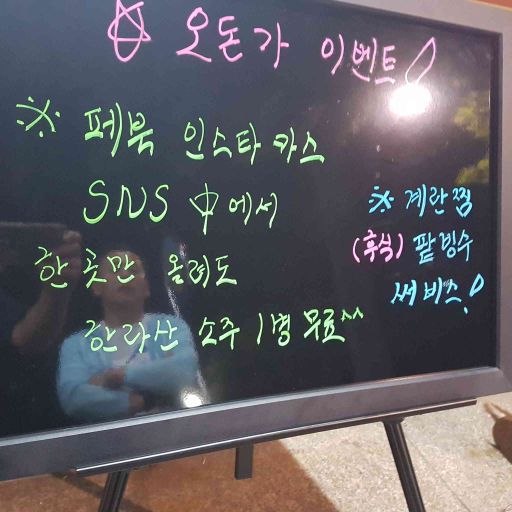 ☆ 오돈가 이벤트!
※ 페북 인스타 카스
SNS 中에서
한 곳만 올려도
한라산 소주 1병 무료^^
※ 계란찜
(후식) 팥빙수
써비스!